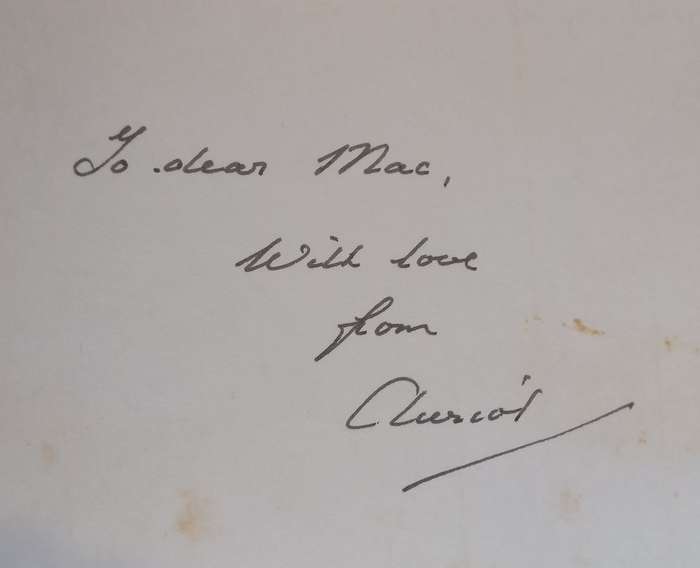 To dear Mac,
With love
from